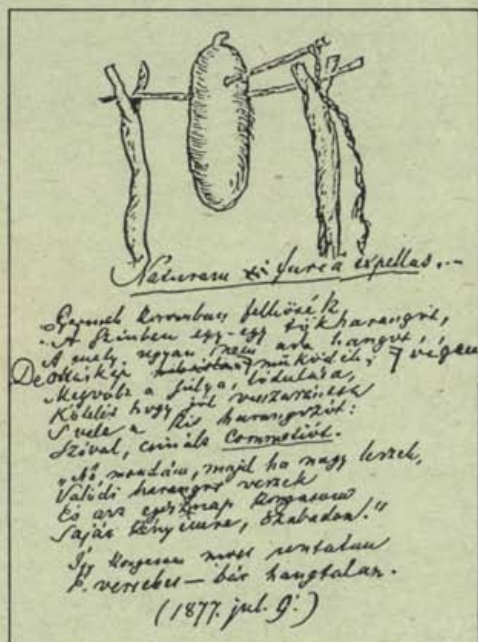 Naturam furcâ expellas..–
Gyermek koromban felköték
A Szinben egy-egy tökharangot,
A mely ugyan nem ada hangot,
De máskép működék,
Megvólt a súlya, lódulása,
hogy jól visszarántsa
S vele a kis harangozót:
Szóval, csinált Commotiót.
„Nó mondám, majd ha nagy leszek,
Valódi harangot veszek
És azt egész nap kongatom
Saját kényemre, szabadon."
Így kongatom most untalan
bár hangtalan.
(1877. jul. 9.)